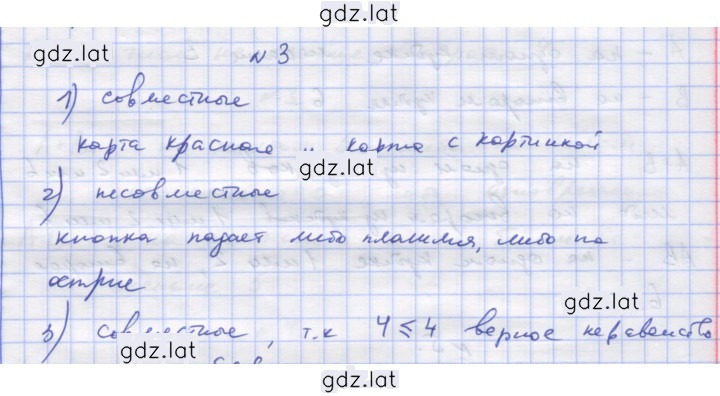 gdz.lat
gdz.lat
N 3
1) совместные
карта красного .. карта с картинкой
gdz.lat
2) несовместные
кнопка падает либо плашмя, либо на
острие
gdz.lat
3) совместные, т.к 4 ≤ 4 верное неравенство
gdz.lat
gdz.lat